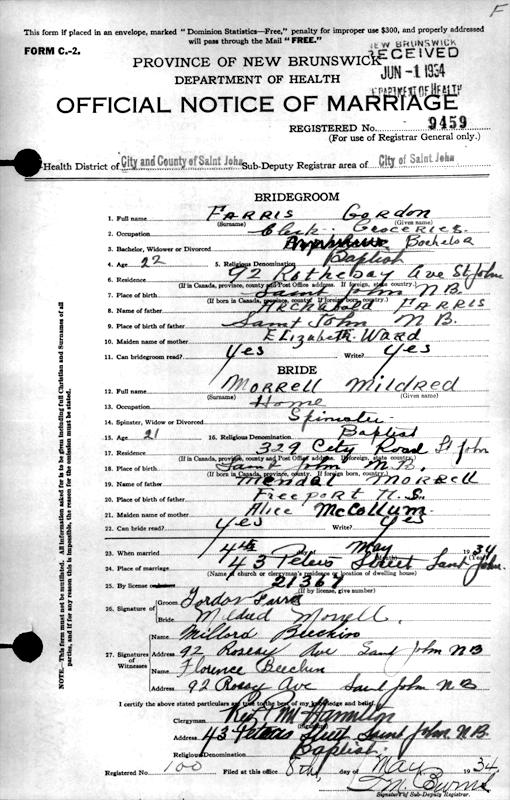 F
This form if placed in an envelope, marked "Dominion Statistics—Free," penalty for improper use $300, and properly addressed
will pass through the Mail "FREE."
FORM C.-2.
PROVINCE OF NEW BRUNSWICK
NEW BRUNSWICK
RECEIVED
JUN -1 1934
DEPARTMENT OF HEALTH
DEPARTMENT OF HEALTH
OFFICIAL NOTICE OF MARRIAGE
REGISTERED No. 9459
(For use of Registrar General only.)
Health District of City and County of Saint John Sub-Deputy Registrar area of City of Saint John
BRIDEGROOM
1. Full name Farris Gordon
(Surname) (Given name)
2. Occupation Clerk Groceries
3. Bachelor, Widower or Divorced Bachelor
4. Age 22 5. Religious Denomination Baptist
6. Residence 92 Rothesay Ave St John
(If in Canada, province, county and Post Office address. If foreign, state country.)
7. Place of birth Saint John N.B.
(If born in Canada, province, county. If foreign born, country.)
8. Name of father Archabold Farris
9. Place of birth of father Saint John N B.
10. Maiden name of mother Elizabeth Ward
11. Can bridegroom read? Yes Write? Yes
BRIDE
12. Full name Morrell Mildred
(Surname) (Given name)
13. Occupation Home
14. Spinster, Widow or Divorced Spinster
15. Age 21 16. Religious Denomination Baptist
17. Residence 329 City Road St John
(If in Canada, province, county and Post Office address. If foreign, state country.)
18. Place of birth Saint John N.B.
(If born in Canada, province, county. If foreign born, country.)
19. Name of father Mendal Morrell
20. Place of birth of father Freeport N.S.
21. Maiden name of mother Alice McCollum
22. Can bride read? Yes Write? Yes
23. When married 4th day May 1934
(Month) (Year)
24. Place of marriage 43 Peters Street Saint John.
(Name of church or clergyman's residence or location of dwelling house)
25. By license
(If by license, give number)
26. Signature of Groom Gordon Farris
Bride Mildred Morrell
27. Signatures of Witnesses Millord
Address 92 Saint John N B
Florence
Address 92 Ave Saint John N B
I certify the above stated particulars are true to the best of my knowledge and belief.
Clergyman Hamilton
Address 43 Peters Street Saint John N B.
Religious Denomination Baptist
Registered No. 100 Filed at this office 8th day of May 1934
Burns
Signature of Sub-Deputy Registrar.
NOTE.—This form must not be mutilated. All information asked for to be given including full Christian and Surnames of all
parties, and if this is impossible, the reason for the omission must be stated.